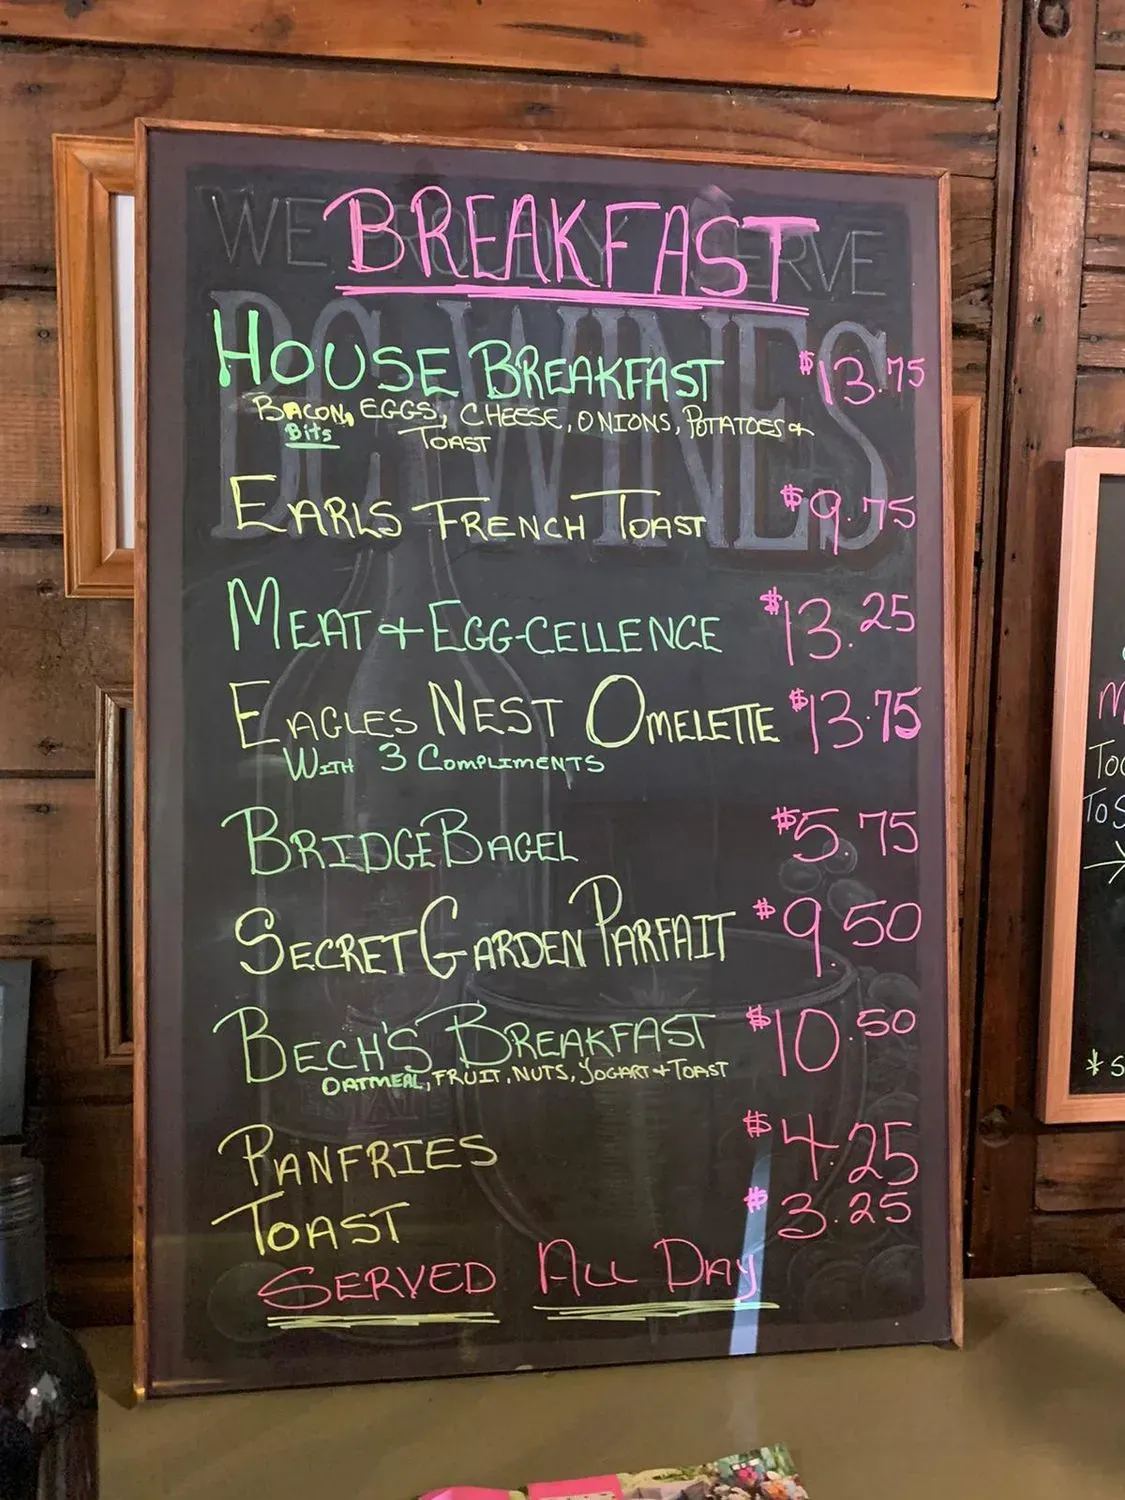 WE PROUDLY SERVE
BC WINES
BREAKFAST
HOUSE BREAKFAST $13.75
BACON, EGGS, CHEESE, ONIONS, POTATOES &
Bits TOAST
EARLS FRENCH TOAST $9.75
MEAT & EGG-CELLENCE $13.25
EAGLES NEST OMELETTE $13.75
WITH 3 COMPLIMENTS
BRIDGE BAGEL $5.75
SECRET GARDEN PARFAIT $9.50
BECH'S BREAKFAST $10.50
OATMEAL, FRUIT, NUTS, YOGART + TOAST
PANFRIES $4.25
TOAST $3.25
SERVED ALL DAY